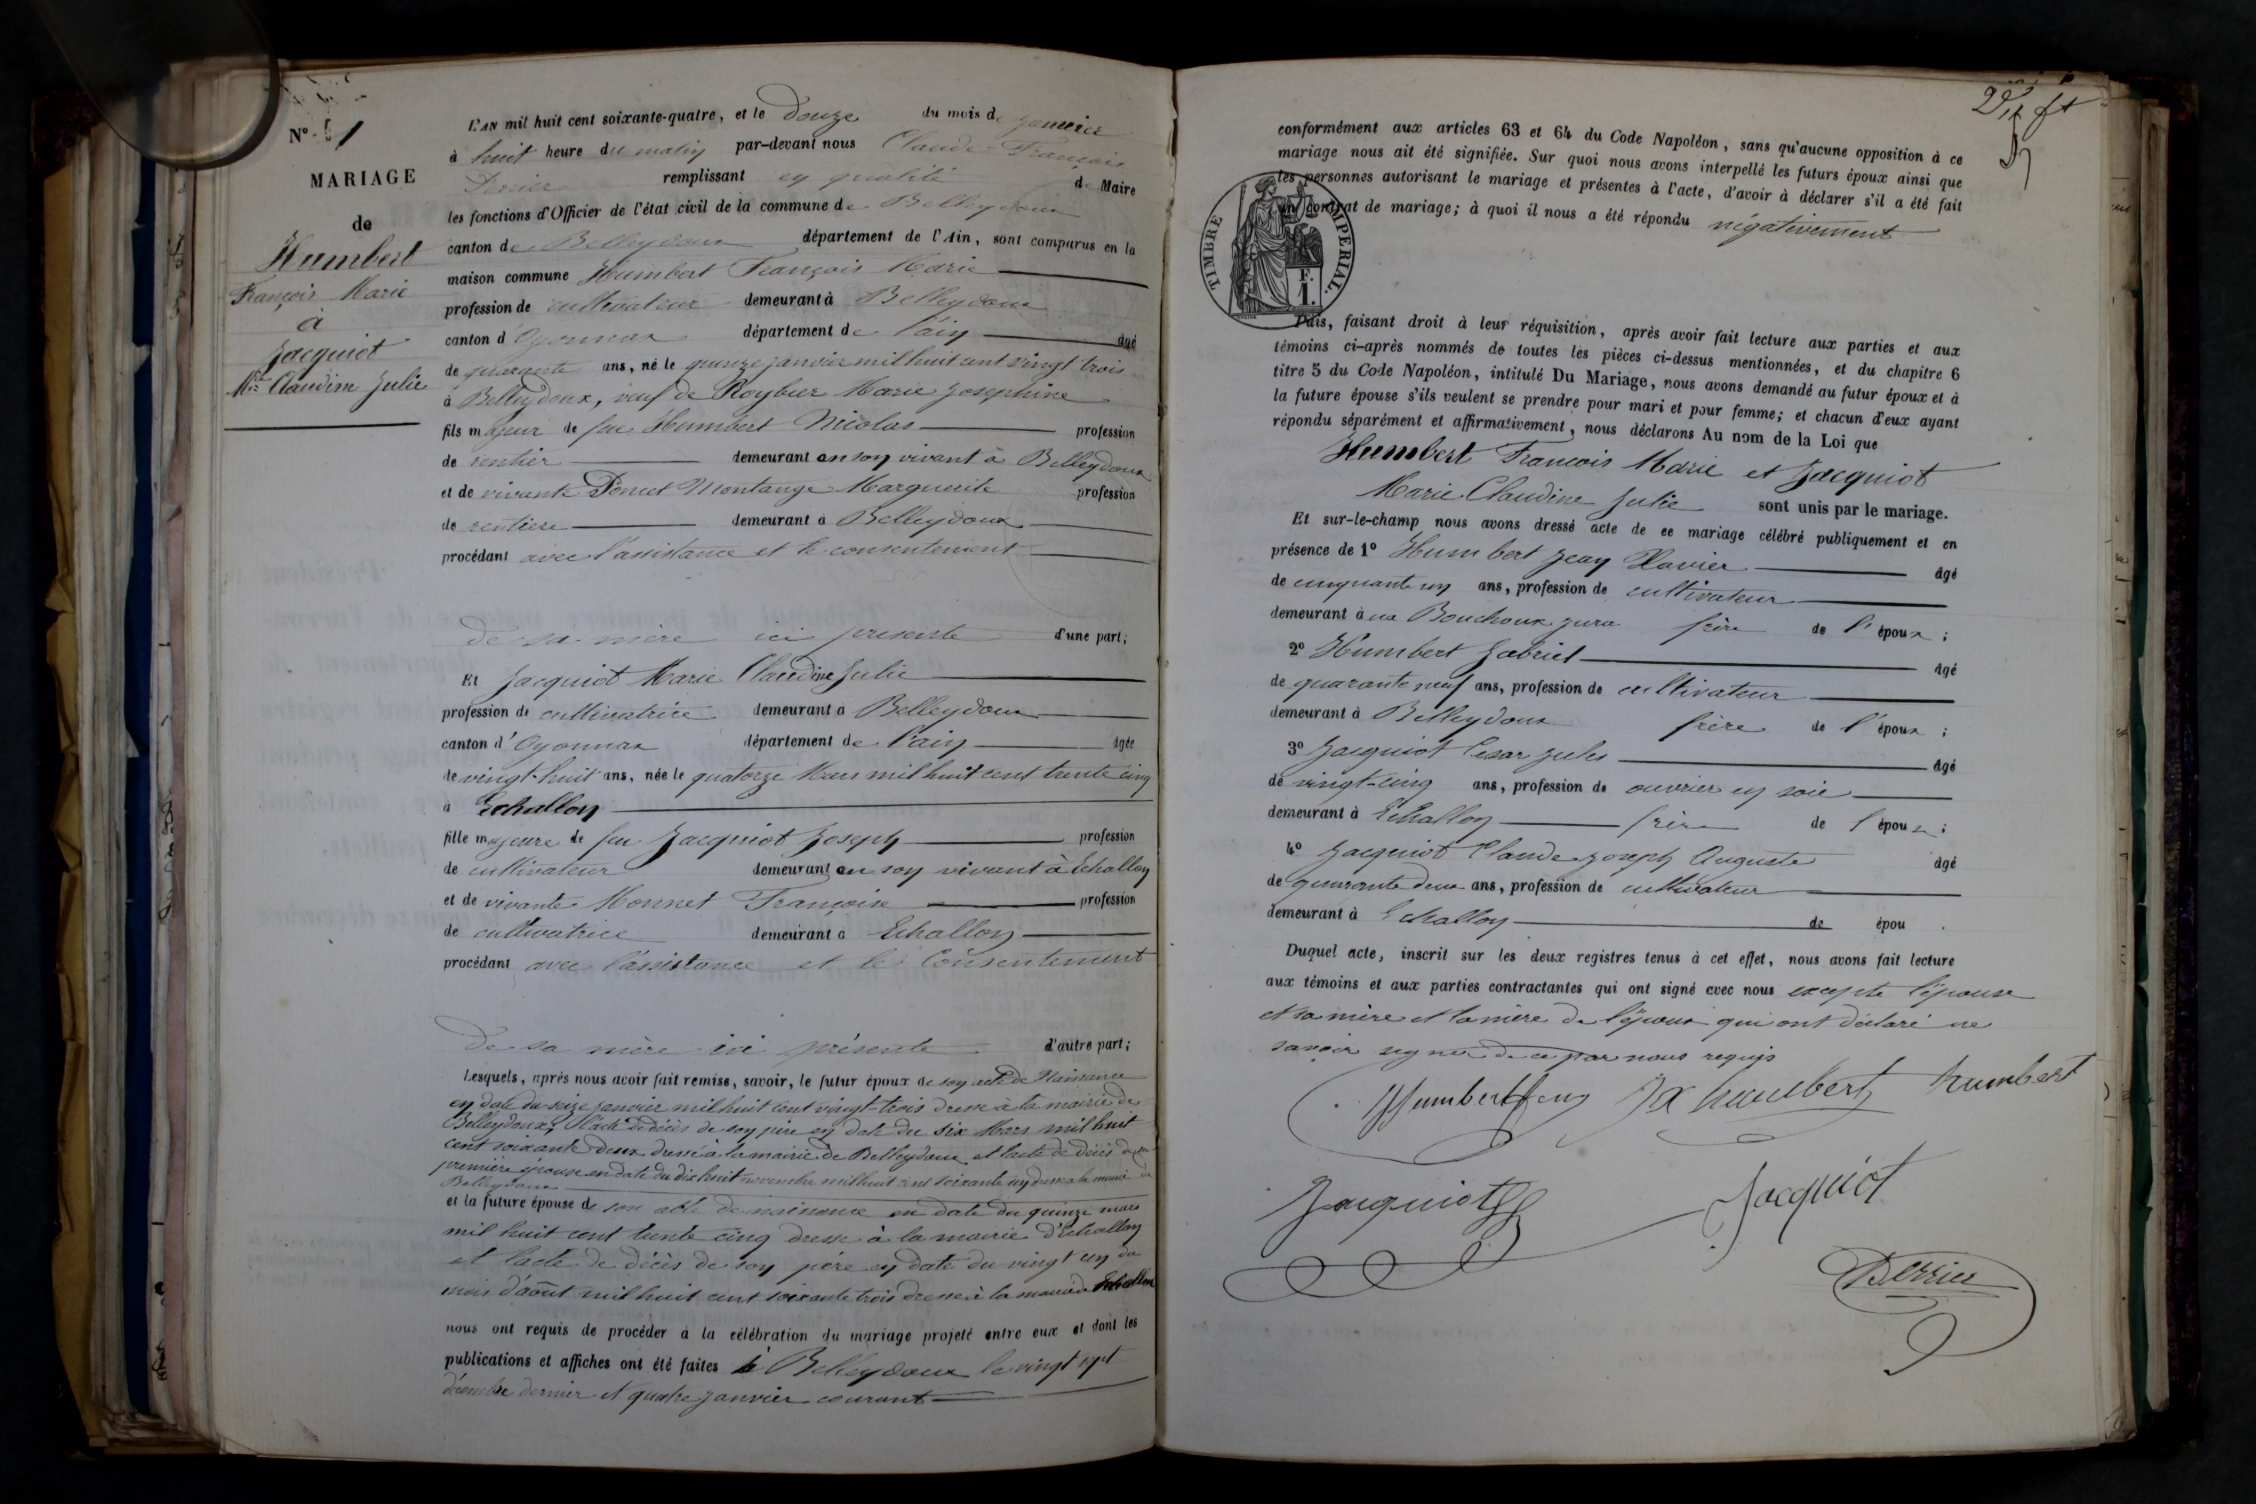 N° 1
MARIAGE
de
Humbert
François Marie
à
Jacquiot
Mie Claudine Julie
L'AN mil huit cent soixante-quatre, et le Douze du mois de janvier
à huit heure du matin par-devant nous Claude François
remplissant en qualité de Maire
les fonctions d'Officier de l'état civil de la commune de Belleydoux
canton de Belleydoux département de l'Ain, sont comparus en la
maison commune Humbert François Marie
profession de cultivateur demeurant à Belleydoux
canton d'Oyonnax département de l'ain âgé
de quarante ans, né le quinze janvier mil huit cent vingt trois
à Belleydoux, veuf de Roybier Marie Josephine
fils majeur de feu Humbert Nicolas profession
de rentier demeurant en son vivant à Belleydoux
et de vivante Poncet Montange Marguerite profession
de rentiere demeurant à Belleydoux
procédant avec l'assistance et le consentement
de sa mère ici presente d'une part;
Et Jacquiot Marie Claudine Julie
profession de cultivatrice demeurant à Belleydoux
canton d'Oyonnax département de l'ain âgée
de vingt-huit ans, née le quatorze Mars mil huit cent trente cinq
à Echallon
fille majeure de feu Jacquiot Joseph profession
de cultivateur demeurant en son vivant à Echallon
et de vivante Monnet Françoise profession
de cultivatrice demeurant à Echallon
procédant avec l'assistance et le Consentement
de sa mère ici présente d'autre part;
Lesquels, après nous avoir fait remise, savoir, le futur époux de son acte de Naissance
en date du seize janvier mil huit cent vingt-trois dressé à la mairie de
Belleydoux, l'acte de décès de son père en date du six Mars mil huit
cent soixante deux dressé à la mairie de Belleydoux et l'acte de décès de sa
première épouse en date du dix huit novembre mil huit cent soixante un dressé à la mairie de
Belleydoux
et la future épouse de son acte de naissance en date du quinze mars
mil huit cent trente cinq dressé à la mairie d'Echallon
et l'acte de décès de son père en date du vingt un du
mois d'août mil huit cent soixante trois dressé à la mairie de Echallon
nous ont requis de procéder à la célébration du mariage projeté entre eux et dont les
publications et affiches ont été faites à Belleydoux le vingt sept
décembre dernier et quatre janvier courant
conformément aux articles 63 et 64 du Code Napoléon, sans qu'aucune opposition à ce
mariage nous ait été signifiée. Sur quoi nous avons interpellé les futurs époux ainsi que
les personnes autorisant le mariage et présentes à l'acte, d'avoir à déclarer s'il a été fait
un contrat de mariage; à quoi il nous a été répondu négativement
TIMBRE IMPERIAL.
F.
1.
Puis, faisant droit à leur réquisition, après avoir fait lecture aux parties et aux
témoins ci-après nommés de toutes les pièces ci-dessus mentionnées, et du chapitre 6
titre 5 du Code Napoléon, intitulé Du Mariage, nous avons demandé au futur époux et à
la future épouse s'ils veulent se prendre pour mari et pour femme; et chacun d'eux ayant
répondu séparément et affirmativement, nous déclarons Au nom de la Loi que
Humbert François Marie et Jacquiot
Marie Claudine Julie sont unis par le mariage.
Et sur-le-champ nous avons dressé acte de ce mariage célébré publiquement et en
présence de 1° Humbert Jean Xavier âgé
de cinquante un ans, profession de cultivateur
demeurant à Bouchoux jura frère de l'époux;
2° Humbert Gabriel âgé
de quarante neuf ans, profession de cultivateur
demeurant à Belleydoux frère de l'époux;
3° Jacquiot Cesar Jules âgé
de vingt-cinq ans, profession de ouvrier en soie
demeurant à Echallon frère de l'épou;
4° Jacquiot Claude Joseph Auguste âgé
de quarante deux ans, profession de cultivateur
demeurant à Echallon de épou .
Duquel acte, inscrit sur les deux registres tenus à cet effet, nous avons fait lecture
aux témoins et aux parties contractantes qui ont signé avec nous excepté l'épouse
et sa mère et la mère de l'époux qui ont déclaré ne
savoir signer de ce par nous requis
Humbert JX humbert humbert
Jacquiot Jacquiot